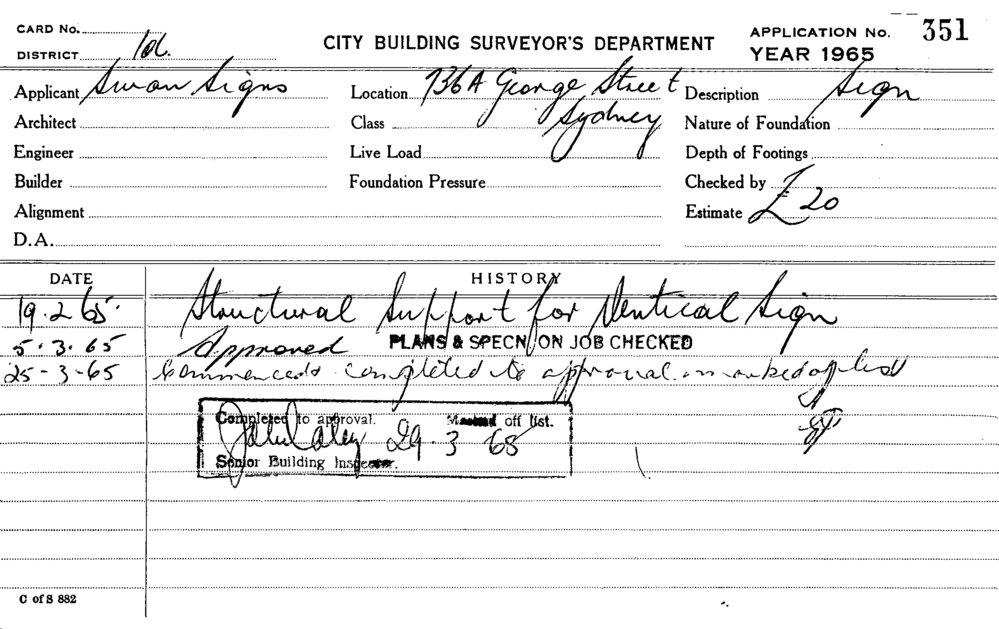 CARD No.
DISTRICT 1d.
CITY BUILDING SURVEYOR'S DEPARTMENT
APPLICATION No. 351
YEAR 1965
Applicant Swan Signs
Location 136A George Street
Sydney
Description Sign
Architect
Class
Nature of Foundation
Engineer
Live Load
Depth of Footings
Builder
Foundation Pressure
Checked by
Alignment
Estimate £20
D.A.
DATE HISTORY
19.2.65. Structural Support for Vertical Sign
5.3.65 Approved PLANS & SPECN ON JOB CHECKED
25-3-65 Commenced & completed to approval. marked off list
Completed to approval. Marked off list.
29.3 65
Senior Building Inspector.
C of S 882